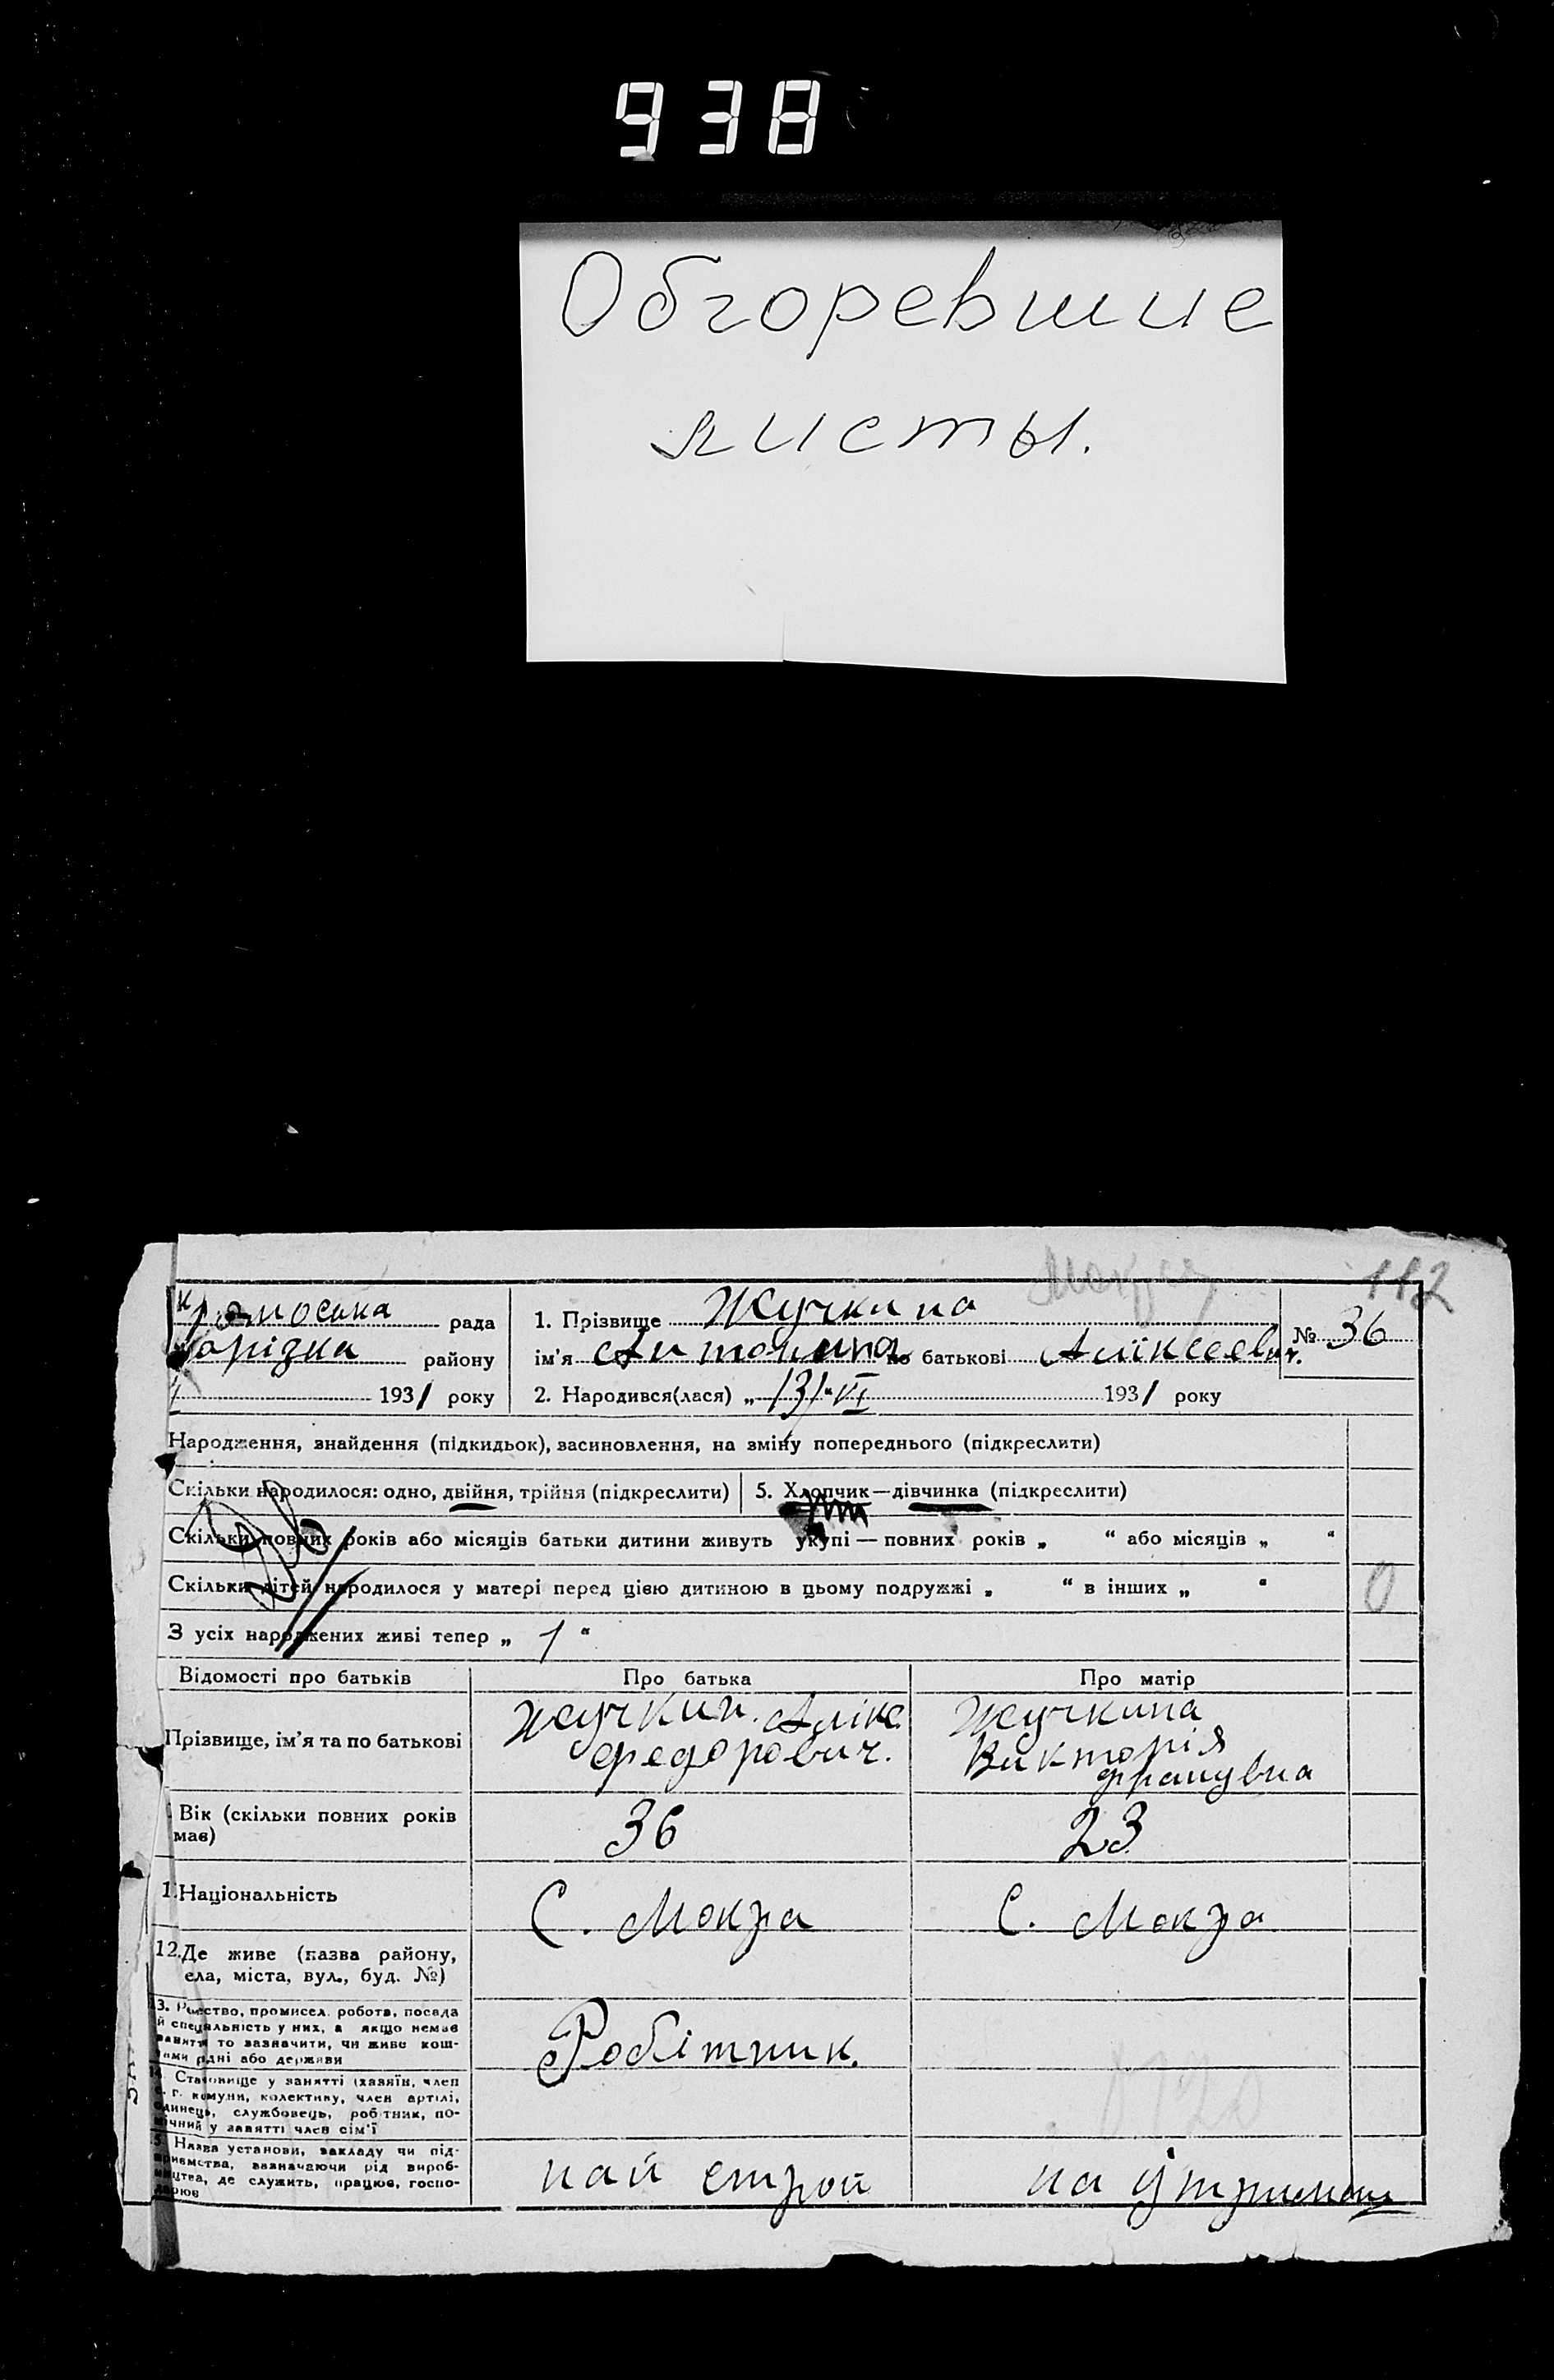 938
Обгоревшие
листы.
112
рада
району
1931 року
1. Прізвище Жучкина
ім'я Антонина по батькові Аліксеевич.
2. Народився(лася) „ “ VI 1931 року
№ 36
Народження, знайдення (підкидьок), засиновлення, на зміну попереднього (підкреслити)
Скільки народилося: одно, двійня, трійня (підкреслити)
5. Хлопчик—дівчинка (підкреслити)
Скільки повних років або місяців батьки дитини живуть укупі — повних років „ “ або місяців „ “
Скільки дітей народилося у матері перед цією дитиною в цьому подружжі „ “ в інших „ “
0
З усіх народжених живі тепер „ 1 “
Відомості про батьків
Про батька
Про матір
Прізвище, ім'я та по батькові
Жучкин. Алікс
федорович.
Жучкина
Викторія
францувна
Вік (скільки повних років
має)
36
23
Національність
С. Мокра
С. Мокра
12. Де живе (назва району,
ела, міста, вул., буд. №)
13. Ремество, промисел, робота, посада
й спеціальність у них, а якщо немає
заняття то зазначити, чи живе кош-
тами рідні або держави
Робітник.
Становище у занятті (хазяїн, член
с. г. комуни, колективу, член артілі,
одинець, службовець, робітник, по-
мічний у занятті член сім'ї
Назва установи, закладу чи під-
приємства, зазначаючи рід вироб-
ництва, де служить, працює, госпо-
дарює
май строй
на утримані